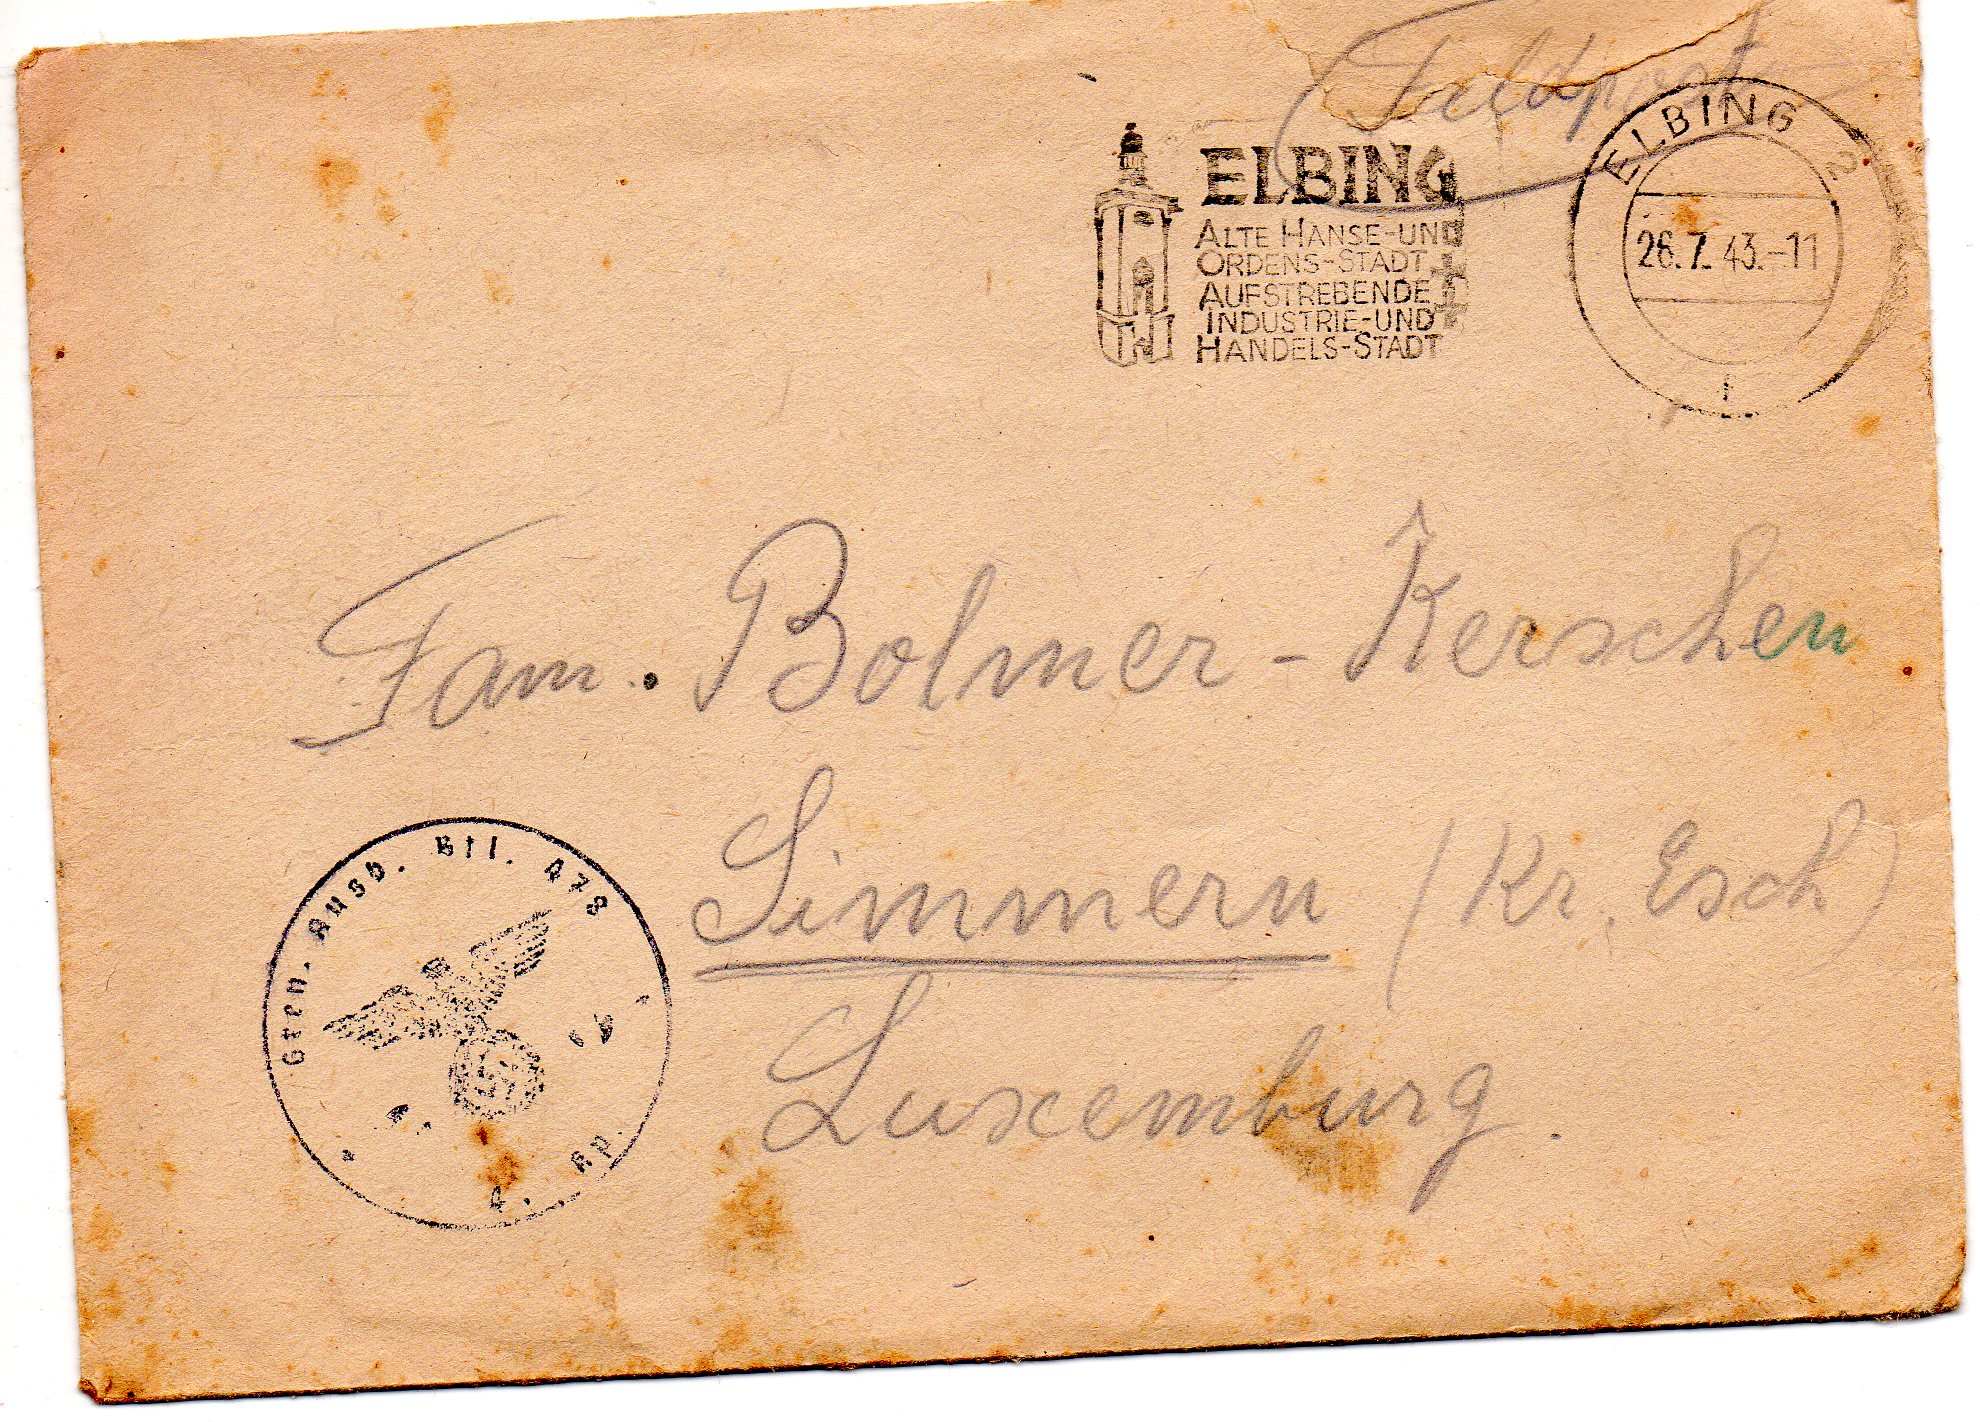 Feldpost
ELBING
ALTE HANSE-UND
ORDENS-STADT
AUFSTREBENDE
INDUSTRIE-UND
HANDELS-STADT
ELBING 2
26.7.43.-11
f
Fam. Bolmer - Kerschen
Simmern (Kr. Esch)
Luxemburg.
Gren. Ausb. Btl. 478
4. Kp.